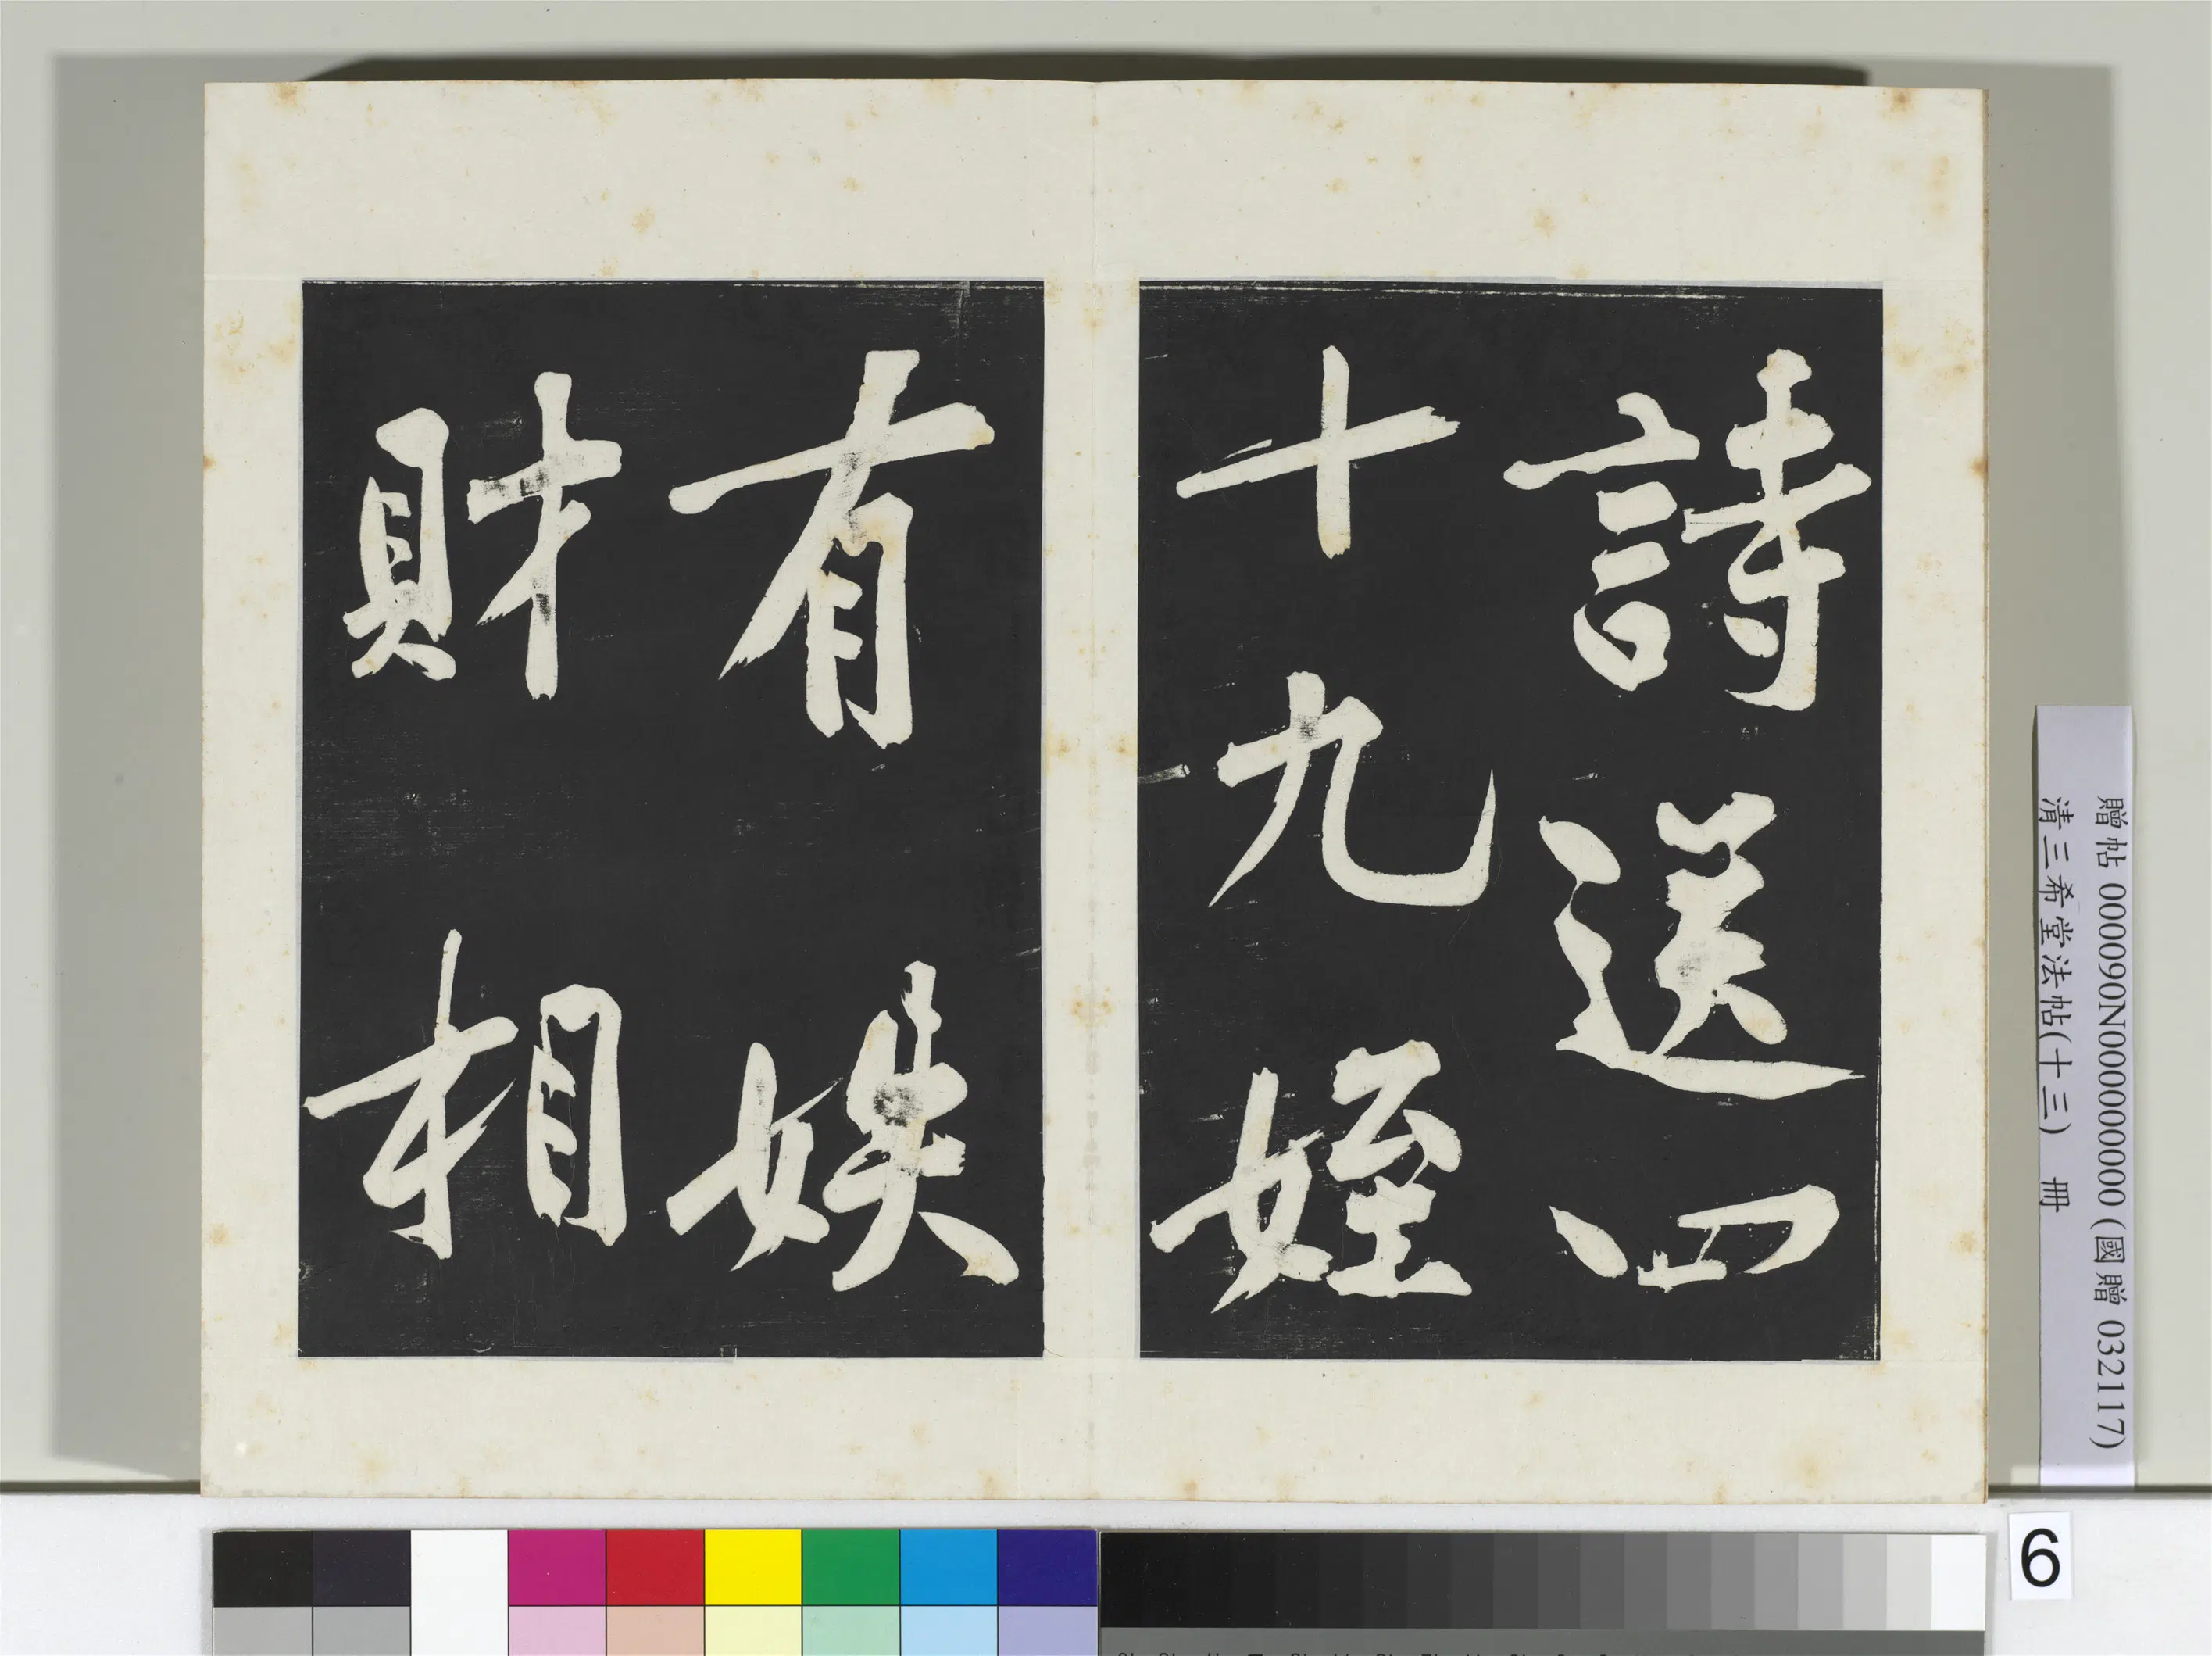 詩送四
十九姪
有娭
財相
贈帖 000090N000000000 (國贈 032117)
清三希堂法帖(十三) 冊
6